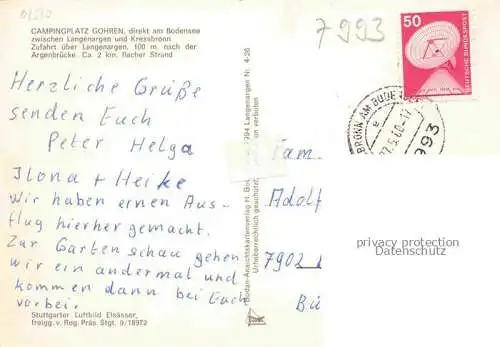 CAMPINGPLATZ GOHREN, direkt am Bodensee
zwischen Langenargen und Kressbronn
Zufahrt über Langenargen, 100 m. nach der
Argenbrücke. Ca. 2 km. flacher Strand
Herzliche Grüße
senden Euch
Peter Helga
Ilona + Heike
Wir haben einen Aus-
flug hierher gemacht.
Zur Gartenschau gehen
wir ein andermal und
kommen dann bei Euch
vorbei.
Stuttgarter Luftbild Elsässer,
freigg. v. Reg. Präs. Stgt. 9/18972
7994 Langenargen Nr. 4-26
Bodan-Ansichtskartenverlag H.
Urheberrechtlich geschützt
verboten
7993
50
DEUTSCHE BUNDESPOST
BRONN AM BODENSEE
7993
Fam.
Adolf
7902
Bü
privacy protection
Datenschutz